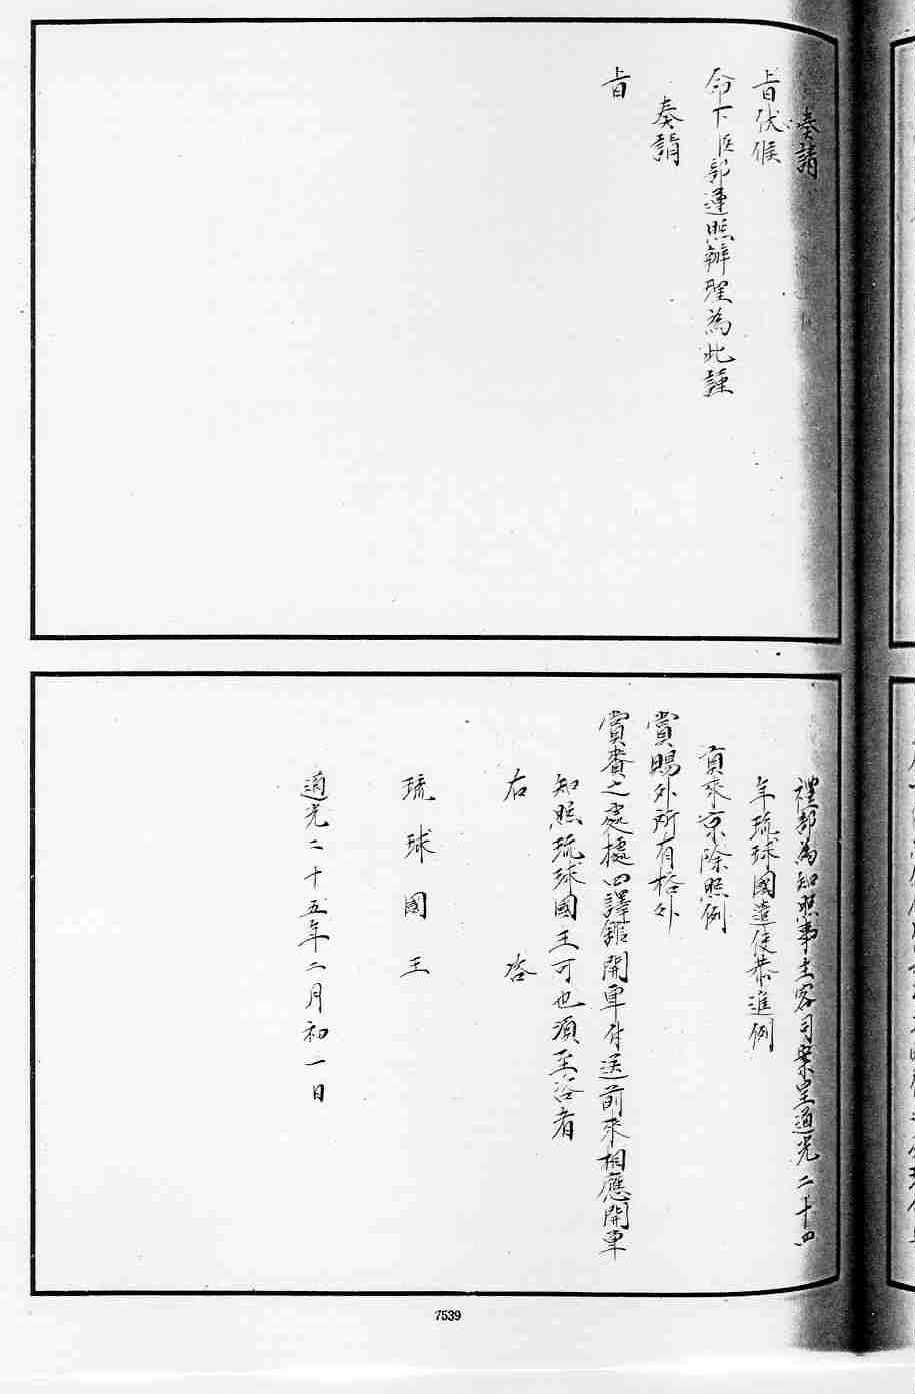 奏請
旨伏候
命下臣部遵照辦理為此謹
奏請
旨
禮部為知照事主客司案呈道光二十四
年琉球國遣使恭進例
貢來京除照例
賞賜外所有格外
賞賚之處據四譯館開單付送前來相應開單
知照琉球國王可也須至咨者
右咨
琉球國王
道光二十五年二月初一日
7539